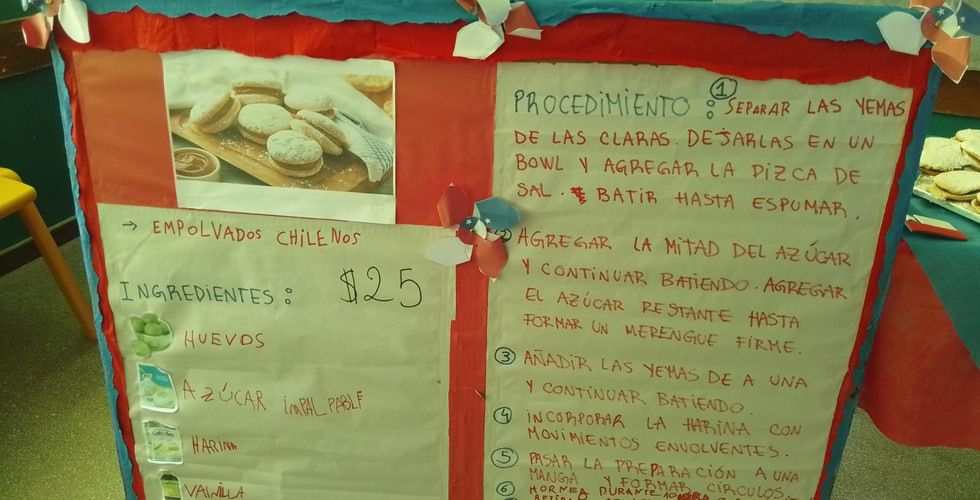 → EMPOLVADOS CHILENOS
INGREDIENTES: $25
HUEVOS
AZÚCAR imPALPABLE
HARINA
VAINILLA
PROCEDIMIENTO: ① SEPARAR LAS YEMAS
DE LAS CLARAS. DEJARLAS EN UN
BOWL Y AGREGAR LA PIZCA DE
SAL. BATIR HASTA ESPUMAR.
② AGREGAR LA MITAD DEL AZÚCAR
Y CONTINUAR BATIENDO. AGREGAR
EL AZÚCAR RESTANTE HASTA
FORMAR UN MERENGUE FIRME.
③ AÑADIR LAS YEMAS DE A UNA
Y CONTINUAR BATIENDO.
④ INCORPORAR LA HARINA CON
MOVIMIENTOS ENVOLVENTES.
⑤ PASAR LA PREPARACIÓN A UNA
MANGA Y FORMAR CÍRCULOS.
⑥ HORNEA DURANTE